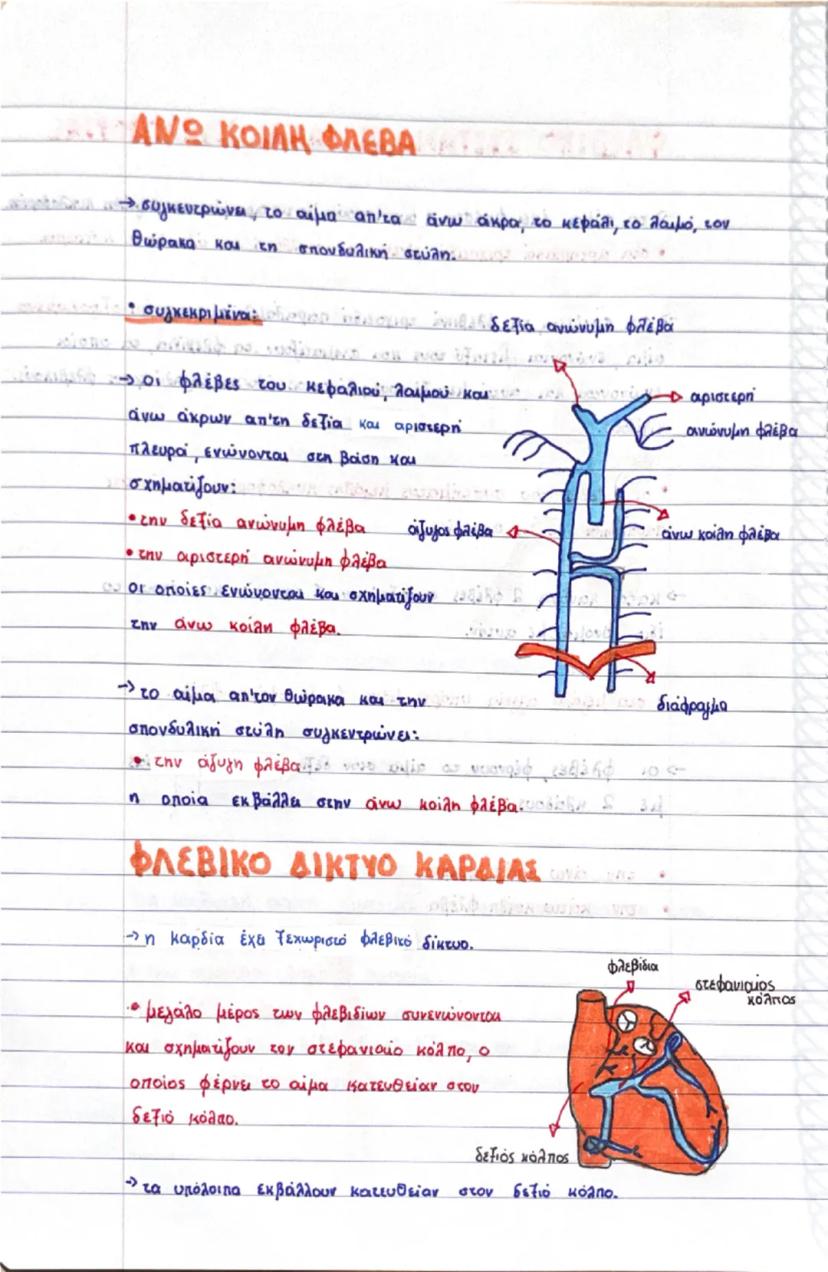 ΑΝΩ ΚΟΙΛΗ ΦΛΕΒΑ
→ συγκεντρώνει το αίμα απ'τα άνω άκρα, το κεφάλι, το λαιμό, τον
θώρακα και τη σπονδυλική στύλη.
• συγκεκριμένα:
δεξία ανώνυμη φλέβα
→ οι φλέβες του κεφαλιού, λαιμού και
άνω άκρων απ'τη δεξία και αριστερή
πλευρά, ενώνονται στη βάση και
σχηματίζουν:
• την δεξία ανώνυμη φλέβα
• την αριστερή ανώνυμη φλέβα
οι οποίες ενώνονται και σχηματίζουν
την άνω κοίλη φλέβα.
αριστερή
ανώνυμη φλέβα
άζυγος φλέβα
άνω κοίλη φλέβα
διάφραγμα
→ το αίμα απ'τον θώρακα και την
σπονδυλική στύλη συγκεντρώνει:
• την άζυγη φλέβα
η οποία εκβάλλει στην άνω κοίλη φλέβα.
ΦΛΕΒΙΚΟ ΔΙΚΤΥΟ ΚΑΡΔΙΑΣ
→ η καρδία έχει ξεχωριστό φλεβικό δίκτυο.
• μεγάλο μέρος των φλεβιδίων συνενώνονται
και σχηματίζουν τον στεφανιαίο κόλπο, ο
οποίος φέρνει το αίμα κατευθείαν στον
δεξιό κόλπο.
φλεβίδια
στεφανιαίος
κόλπος
δεξιός κόλπος
→ τα υπόλοιπα εκβάλλουν κατευθείαν στον δεξιό κόλπο.